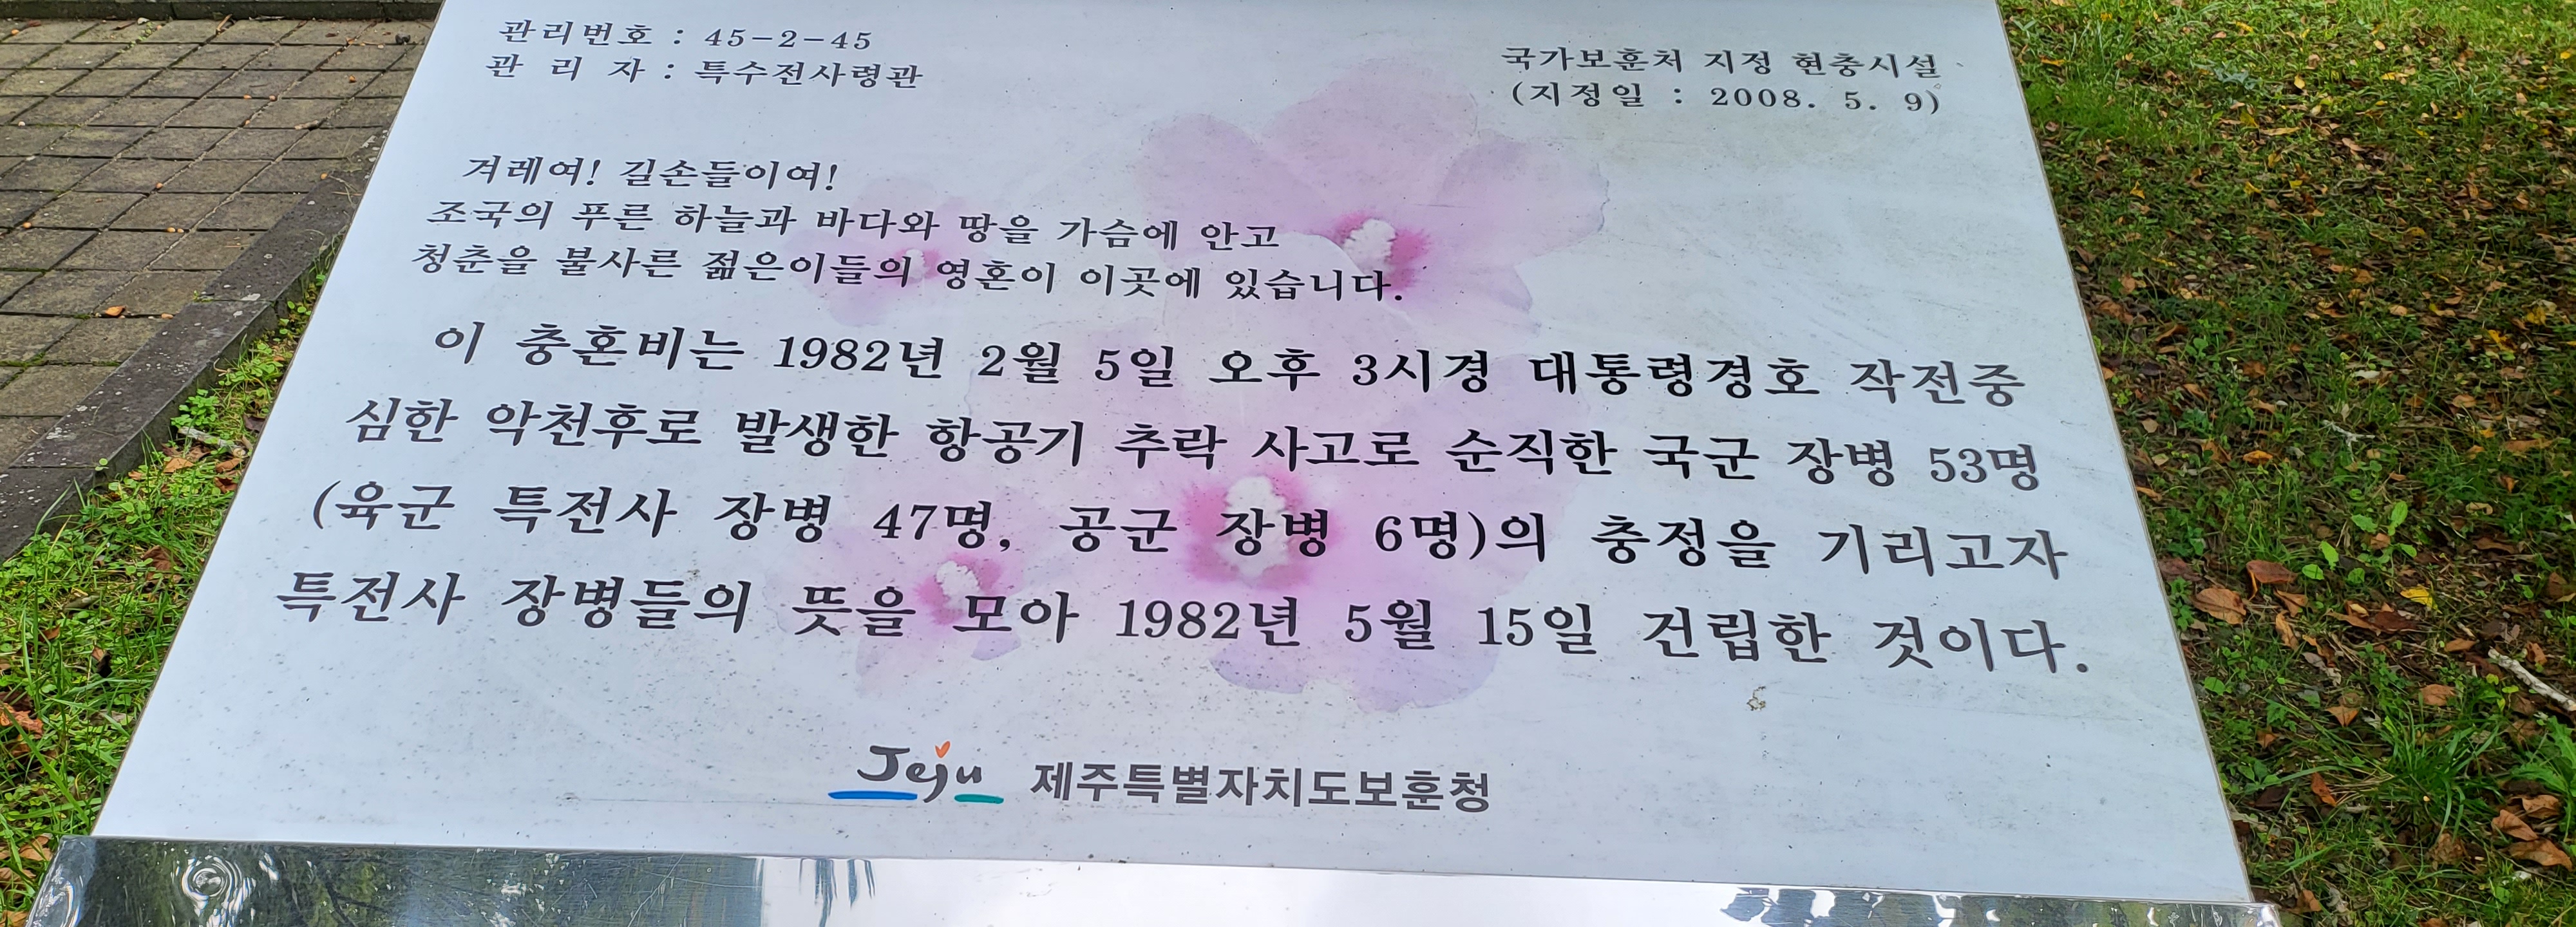 관리번호 : 45-2-45
관 리 자 : 특수전사령관
국가보훈처 지정 현충시설
(지정일 : 2008. 5. 9)
겨레여! 길손들이여!
조국의 푸른 하늘과 바다와 땅을 가슴에 안고
청춘을 불사른 젊은이들의 영혼이 이곳에 있습니다.
이 충혼비는 1982년 2월 5일 오후 3시경 대통령경호 작전중
심한 악천후로 발생한 항공기 추락 사고로 순직한 국군 장병 53명
(육군 특전사 장병 47명, 공군 장병 6명)의 충정을 기리고자
특전사 장병들의 뜻을 모아 1982년 5월 15일 건립한 것이다.
Jeju 제주특별자치도보훈청